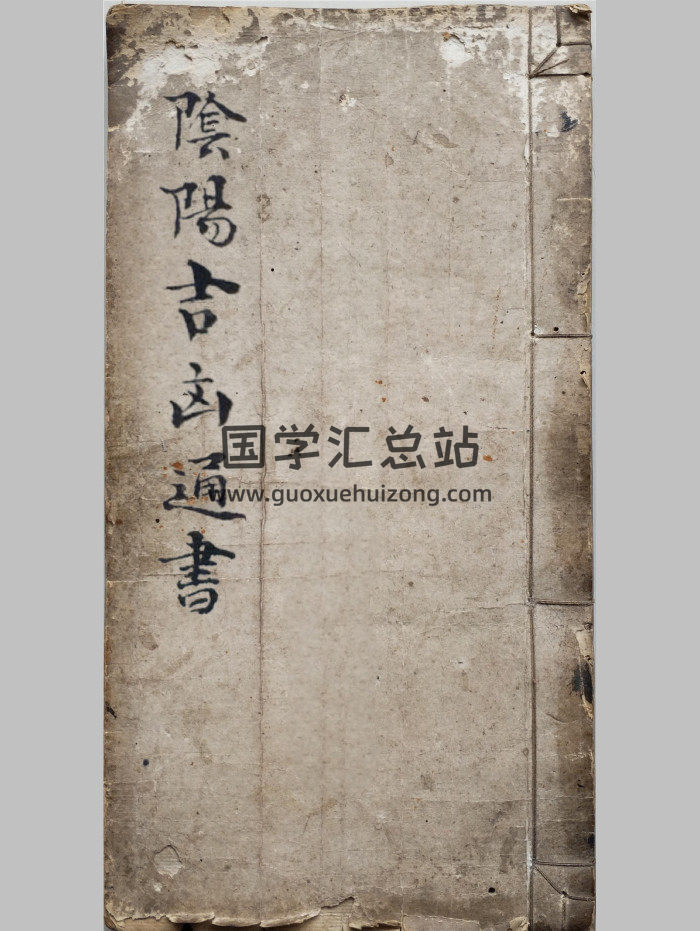 陰陽吉凶通書
国学汇总站
www.guoxuehuizong.com